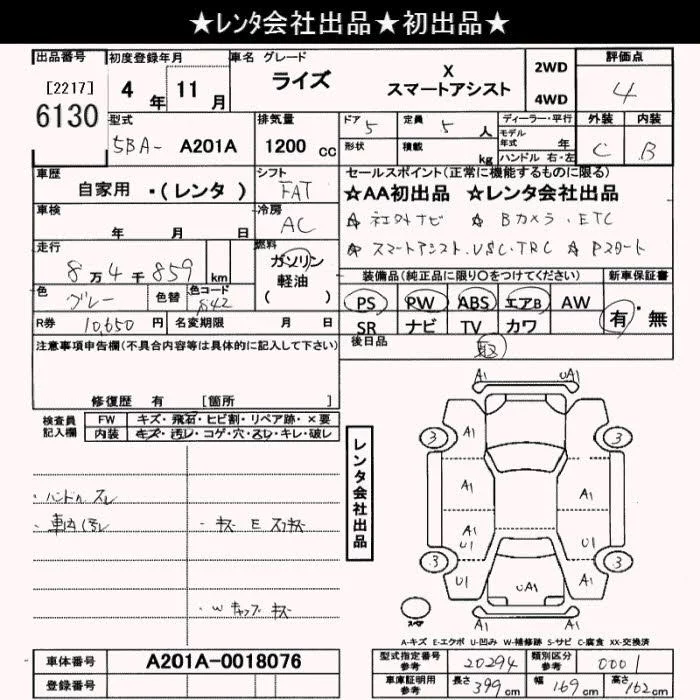 ★レンタ会社出品★初出品★
出品番号 初度登録年月 車名 グレード 評価点
[2217] 6130 4年 11月 ライズ X スマートアシスト 2WD 4WD 4
型式 排気量 ドア 5 定員 5人 ディーラー・平行 外装 内装
5BA- A201A 1200cc 形状 積載 kg モデル年式 年 ハンドル 右・左 C B
車歴 シフト セールスポイント(正常に機能するものに限る)
自家用 ・(レンタ) FAT ☆AA初出品 ☆レンタ会社出品
車検 冷房 ☆ 社外ナビ ☆ Bカメラ．ETC
年 月 日 AC ☆ スマートアシスト．VSC．TRC ☆ Pスタート
走行 燃料 装備品(純正品に限り○をつけてください) 新車保証書
8万4千859km ガソリン 軽油 ( ) PS PW ABS エアB AW 有・無
色 グレー 色替 色コード S42 SR ナビ TV カワ
R券 10,650円 名変期限 月 日 後日品 取
注意事項申告欄(不具合内容等は具体的に記入して下さい)
修復歴 有 [箇所 ]
検査員記入欄 FW キズ・飛石・ヒビ割・リペア跡・×要
内装 キズ・汚レ・コゲ・穴・スレ・キレ・破レ
レンタ会社出品
・ハンドルスレ
・車内汚レ
・キズ E スリキズ
・W キャップ キズ
A1 UA1
3 A1 3
A1 A1
A1 U1 A1 U1
3 U1 UA1 A1 3
スペア
A1 A1
A-キズ E-エクボ U-凹み W-補修跡 S-サビ C-腐食 XX-交換済
車体番号 A201A-0018076 型式指定番号 参考 20294 類別区分 参考 0001
登録番号 車庫証明用 参考 長さ 399cm 幅 169cm 高さ 162cm